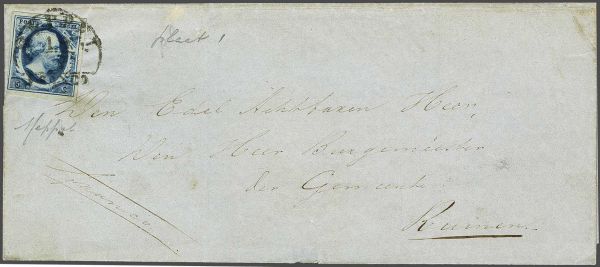 POST
5 C
Plaat 1
Den Edel Achtbaren Heer,
Meppel
Den Heer Burgemeester
der Gemeente
Franco
Ruinen